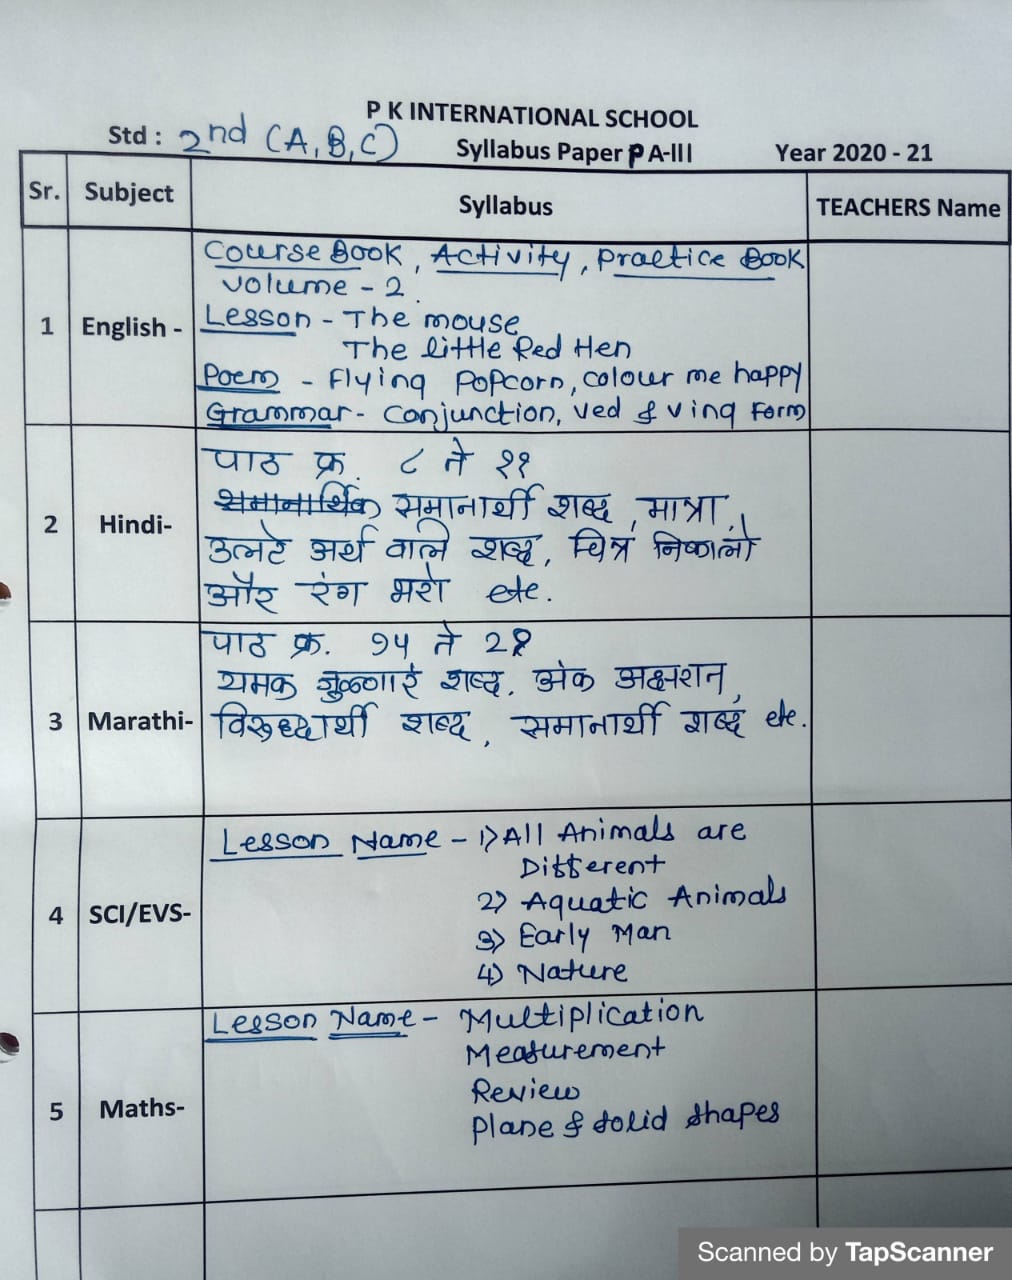 P K INTERNATIONAL SCHOOL
Std : 2nd (A, B, C) Syllabus Paper PA-III Year 2020 - 21
Sr. Subject Syllabus TEACHERS Name
1 English -
Course Book, Activity, Practice Book
volume - 2.
Lesson - The mouse
The little Red Hen
Poem - Flying Popcorn, colour me happy
Grammar - Conjunction, ved & ving Form
2 Hindi-
पाठ क्र. ८ ते ११
समानार्थिक समानार्थी शब्द, मात्रा,
उलटे अर्थ वाले शब्द, चित्र निकालो
और रंग भरो etc.
3 Marathi-
पाठ क्र. १५ ते
यमक जुळणारे शब्द, अंक अक्षरात,
विरुध्दार्थी शब्द, समानार्थी शब्द etc.
4 SCI/EVS-
Lesson Name - 1) All Animals are
Different
2) Aquatic Animals
3) Early Man
4) Nature
5 Maths-
Lesson Name - Multiplication
Measurement
Review
Plane & solid shapes
Scanned by TapScanner